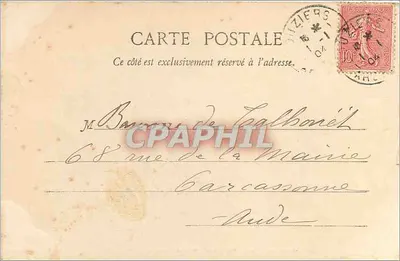 CARTE POSTALE
Ce côté est exclusivement réservé à l'adresse.
M Baronne de Talhouët
68 rue de la Mairie
Carcassonne
Aude
CPAPHIL
04
10